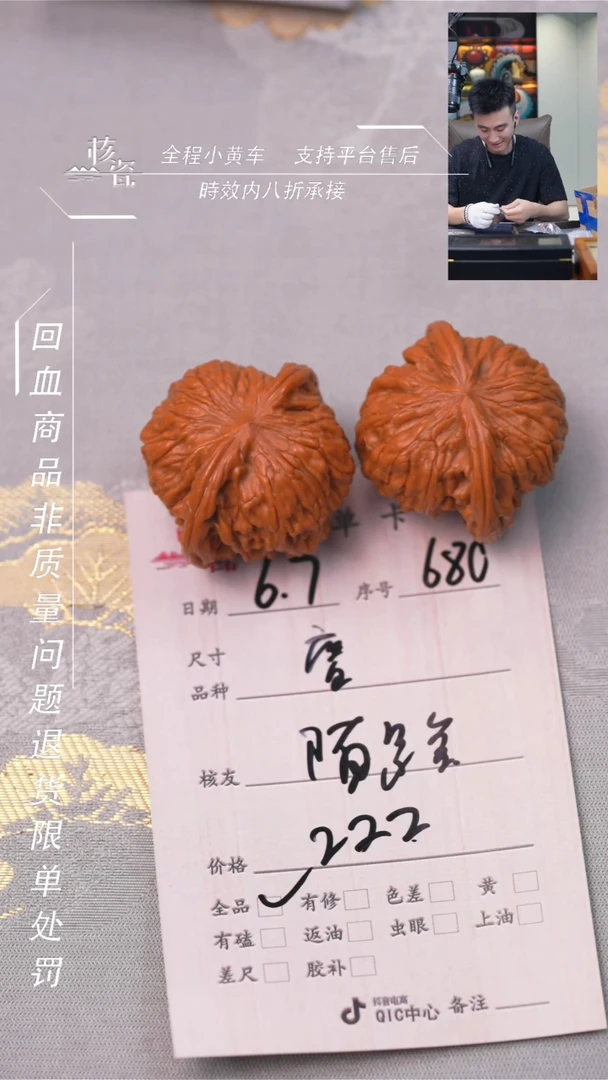 核瓷
全程小黄车 支持平台售后
時效内八折承接
回血商品非质量问题退货限单处罚
单卡
日期 6.7 序号 680
尺寸
品种
核友 陌
价格 222
全品 ✓ 有修 色差 黄
有磕 返油 虫眼 上油
差尺 胶补
抖音电商
QIC中心 备注